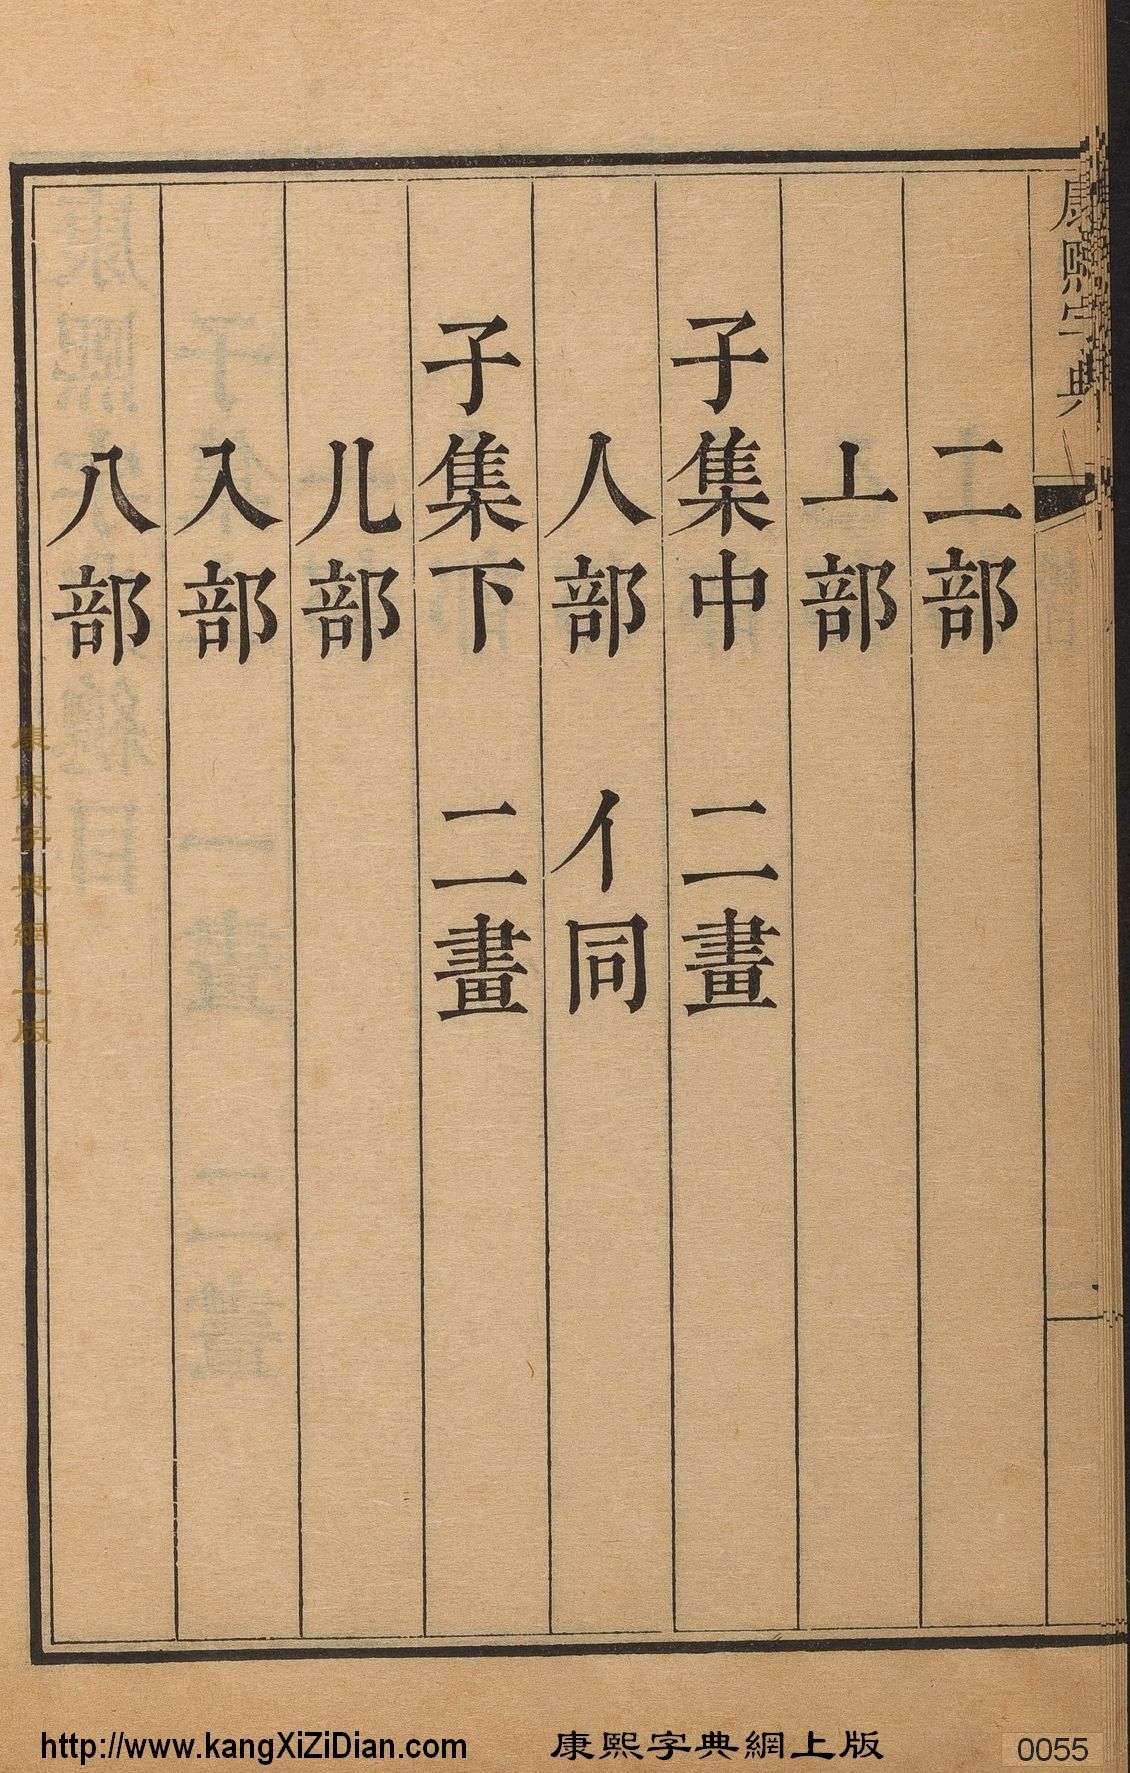 康熙字典
二部
丄部
子集中 二畫
人部 亻同
子集下 二畫
儿部
入部
八部
康熙字典網上版
http://www.kangXiZiDian.com 康熙字典網上版 0055